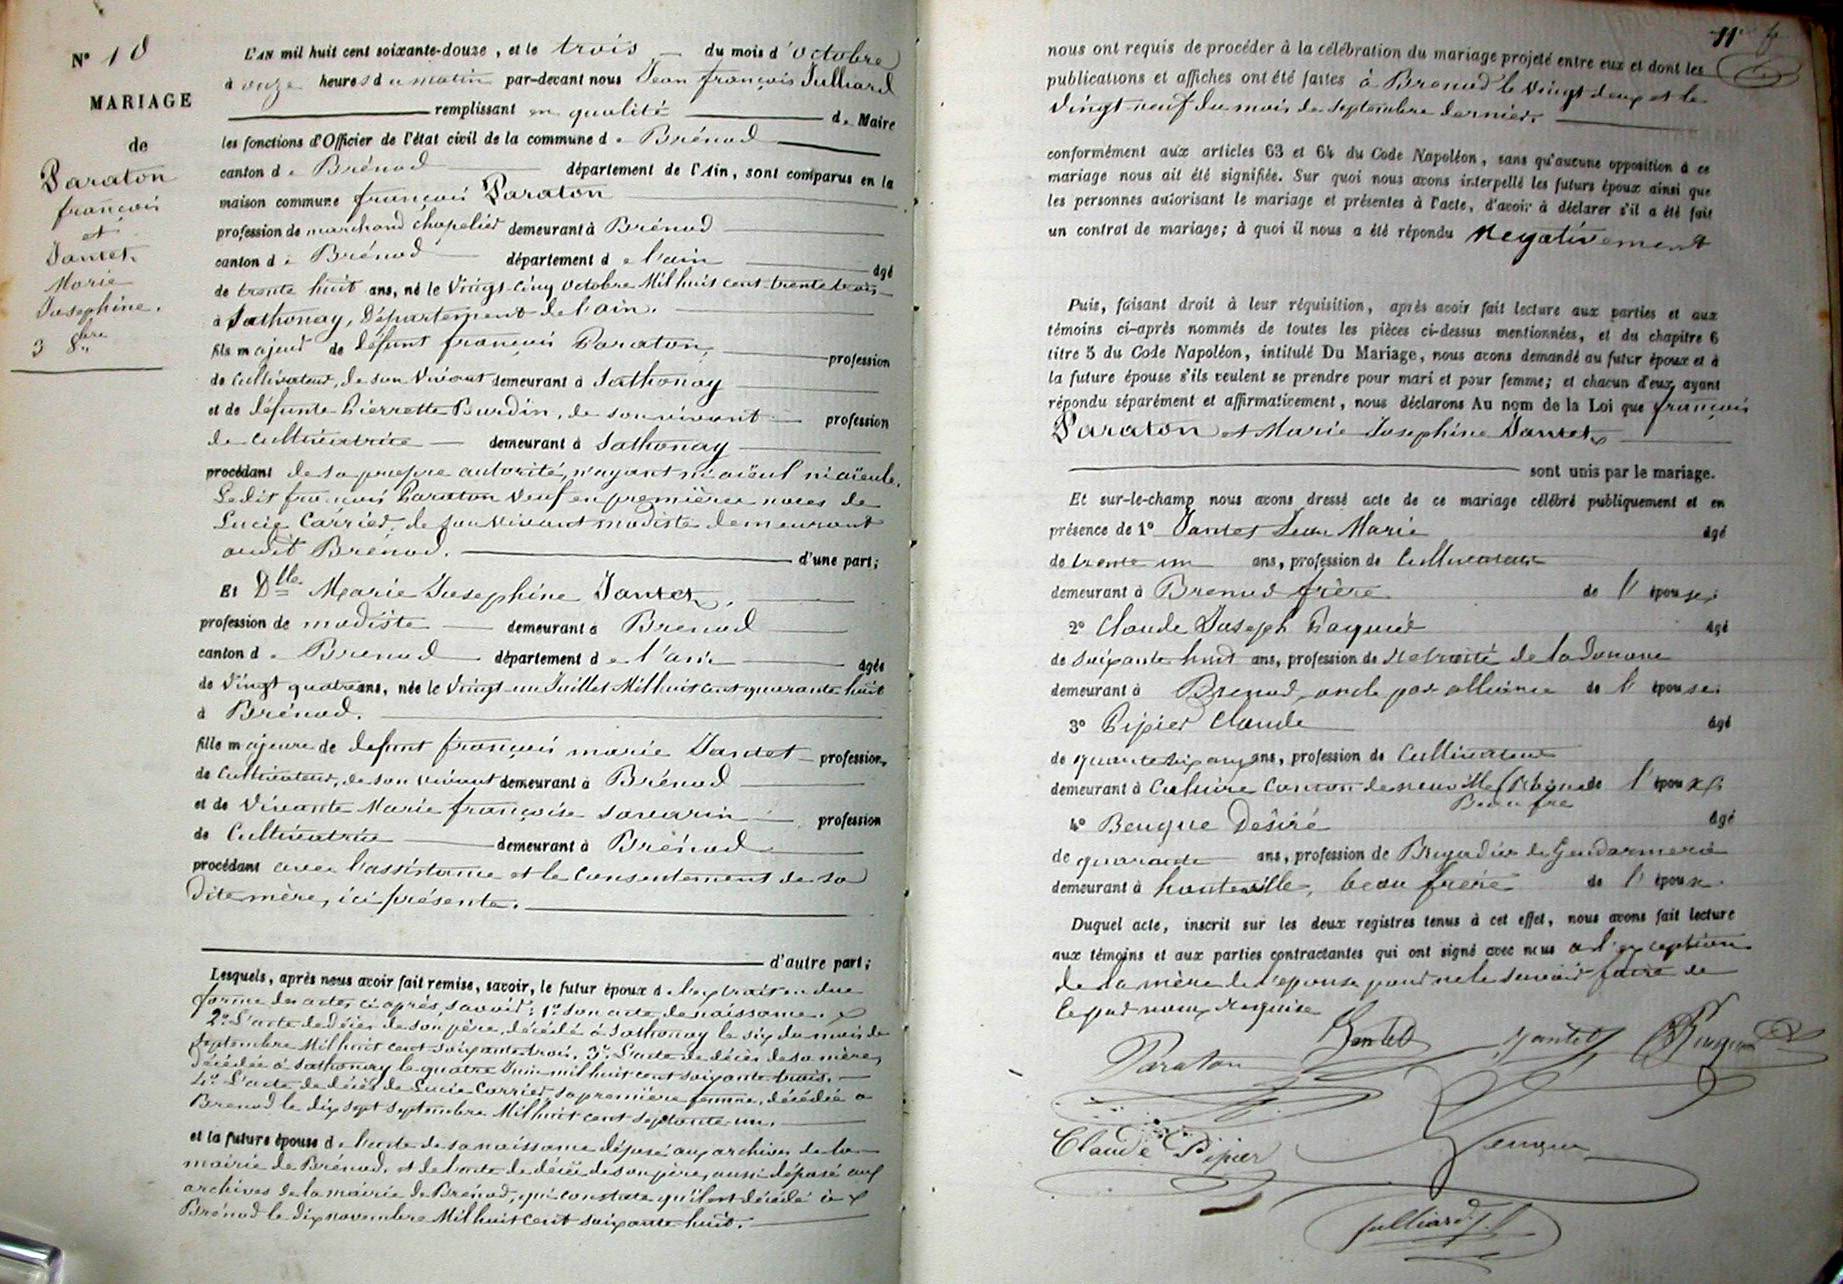 N° 10
MARIAGE
de
Paraton
françois
et
Jantet
Marie
Josephine.
3 8bre
L'AN mil huit cent soixante-douze, et le trois du mois d'octobre
à onze heures du matin par-devant nous Jean françois Julliard
remplissant en qualité de Maire
les fonctions d'Officier de l'état civil de la commune de Brénod
canton de Brénod département de l'Ain, sont comparus en la
maison commune françois Paraton
profession de marchand chapelier demeurant à Brénod
canton de Brénod département de l'ain âgé
de trente huit ans, né le Vingt-cinq octobre Mil huit cent trente trois
à Sathonay, Département de l'ain.
fils majeur de défunt françois Paraton, profession
de cultivateur, de son vivant demeurant à Sathonay
et de défunte Pierrette Burdin, de son vivant profession
de cultivatrice demeurant à Sathonay
procédant de sa propre autorité, n'ayant ni aïeul ni aïeule.
Ledit françois Paraton veuf en premières noces de
Lucie Carrier, de son vivant modiste demeurant
audit Brénod. d'une part;
Et Dlle Marie Josephine Jantet,
profession de modiste demeurant à Brénod
canton de Brenod département de l'ain âgée
de Vingt quatre ans, née le Vingt-un Juillet Mil huit cent quarante huit
à Brénod.
fille majeure de défunt françois marie Jantet profession
de cultivateur, de son vivant demeurant à Brénod
et de Vivante Marie françoise Savarin profession
de Cultivatrice demeurant à Brénod
procédant avec l'assistance et le consentement de sa
dite mère, ici présente.
d'autre part;
Lesquels, après nous avoir fait remise, savoir, le futur époux de l'extrait en due
forme des actes ci-après, savoir: 1° son acte de naissance.
2° L'acte de décès de son père, décédé à Sathonay le six du mois de
septembre Mil huit cent soixante trois. 3° L'acte de décès de sa mère,
décédée à Sathonay le quatre Juin mil huit cent soixante trois.
4° L'acte de décès de Lucie Carrier, sa première femme, décédée à
Brenod le dix sept septembre Mil huit cent septante un.
et la future épouse de l'acte de sa naissance déposé aux archives de la
mairie de Brénod. et de l'acte de décès de son père, aussi déposé aux
archives de la mairie de Brénod, qui constate qu'il est décédé à
Brénod le dix novembre Mil huit cent soixante huit.
11
nous ont requis de procéder à la célébration du mariage projeté entre eux et dont les
publications et affiches ont été faites à Brenod le vingt deux et le
Vingt-neuf du mois de septembre dernier.
conformément aux articles 63 et 64 du Code Napoléon, sans qu'aucune opposition à ce
mariage nous ait été signifiée. Sur quoi nous avons interpellé les futurs époux ainsi que
les personnes autorisant le mariage et présentes à l'acte, d'avoir à déclarer s'il a été fait
un contrat de mariage; à quoi il nous a été répondu Negativement
Puis, faisant droit à leur réquisition, après avoir fait lecture aux parties et aux
témoins ci-après nommés de toutes les pièces ci-dessus mentionnées, et du chapitre 6
titre 5 du Code Napoléon, intitulé Du Mariage, nous avons demandé au futur époux et à
la future épouse s'ils veulent se prendre pour mari et pour femme; et chacun d'eux ayant
répondu séparément et affirmativement, nous déclarons Au nom de la Loi que françois
Paraton et Marie Josephine Jantet
sont unis par le mariage.
Et sur-le-champ nous avons dressé acte de ce mariage célébré publiquement et en
présence de 1° Jantet Jean Marie âgé
de trente un ans, profession de Cultivateur
demeurant à Brenod frère de l'épouse.
2° Claude Joseph Paquier âgé
de soixante huit ans, profession de Retraité de la Douane
demeurant à Brenod oncle par alliance de l'épouse.
3° Pipier Claude âgé
de quarante six ans ans, profession de Cultivateur
demeurant à Caluire canton de neuville (Rhône) de l'époux
Beau fre
4° Beuque Désiré âgé
de quarante ans, profession de Brigadier de Gendarmerie
demeurant à hauteville, beau frère de l'époux.
Duquel acte, inscrit sur les deux registres tenus à cet effet, nous avons fait lecture
aux témoins et aux parties contractantes qui ont signé avec nous à l'exception
de la mère de l'épouse pour ne le savoir faire de
ce par nous requise
Paraton Jantet Jantet
Claude Pipier Beuque
Julliard J.f.